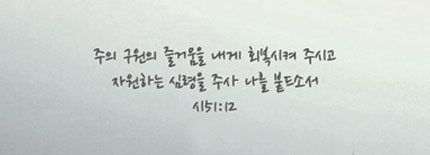 주의 구원의 즐거움을 내게 회복시켜 주시고
자원하는 심령을 주사 나를 붙드소서
시51:12